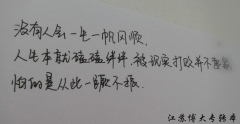 没有人会一生一帆风顺,
人生本就磕磕绊绊.被现实打败并不可怕
怕的是从此一蹶不振.
江苏博大专转本